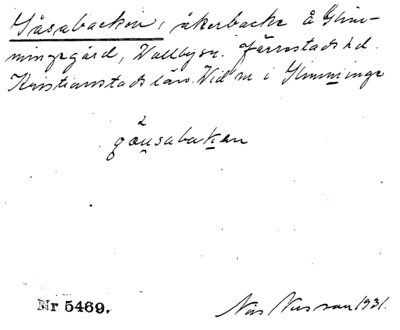 Gåsabacken, åkerbacke å Glim-
mingegård, Vallby sn. Järrestads hd.
Kristianstads län. Vid m i Glimminge
2
gåusabaken
Nr 5469.
Nils Nilsson 1931.